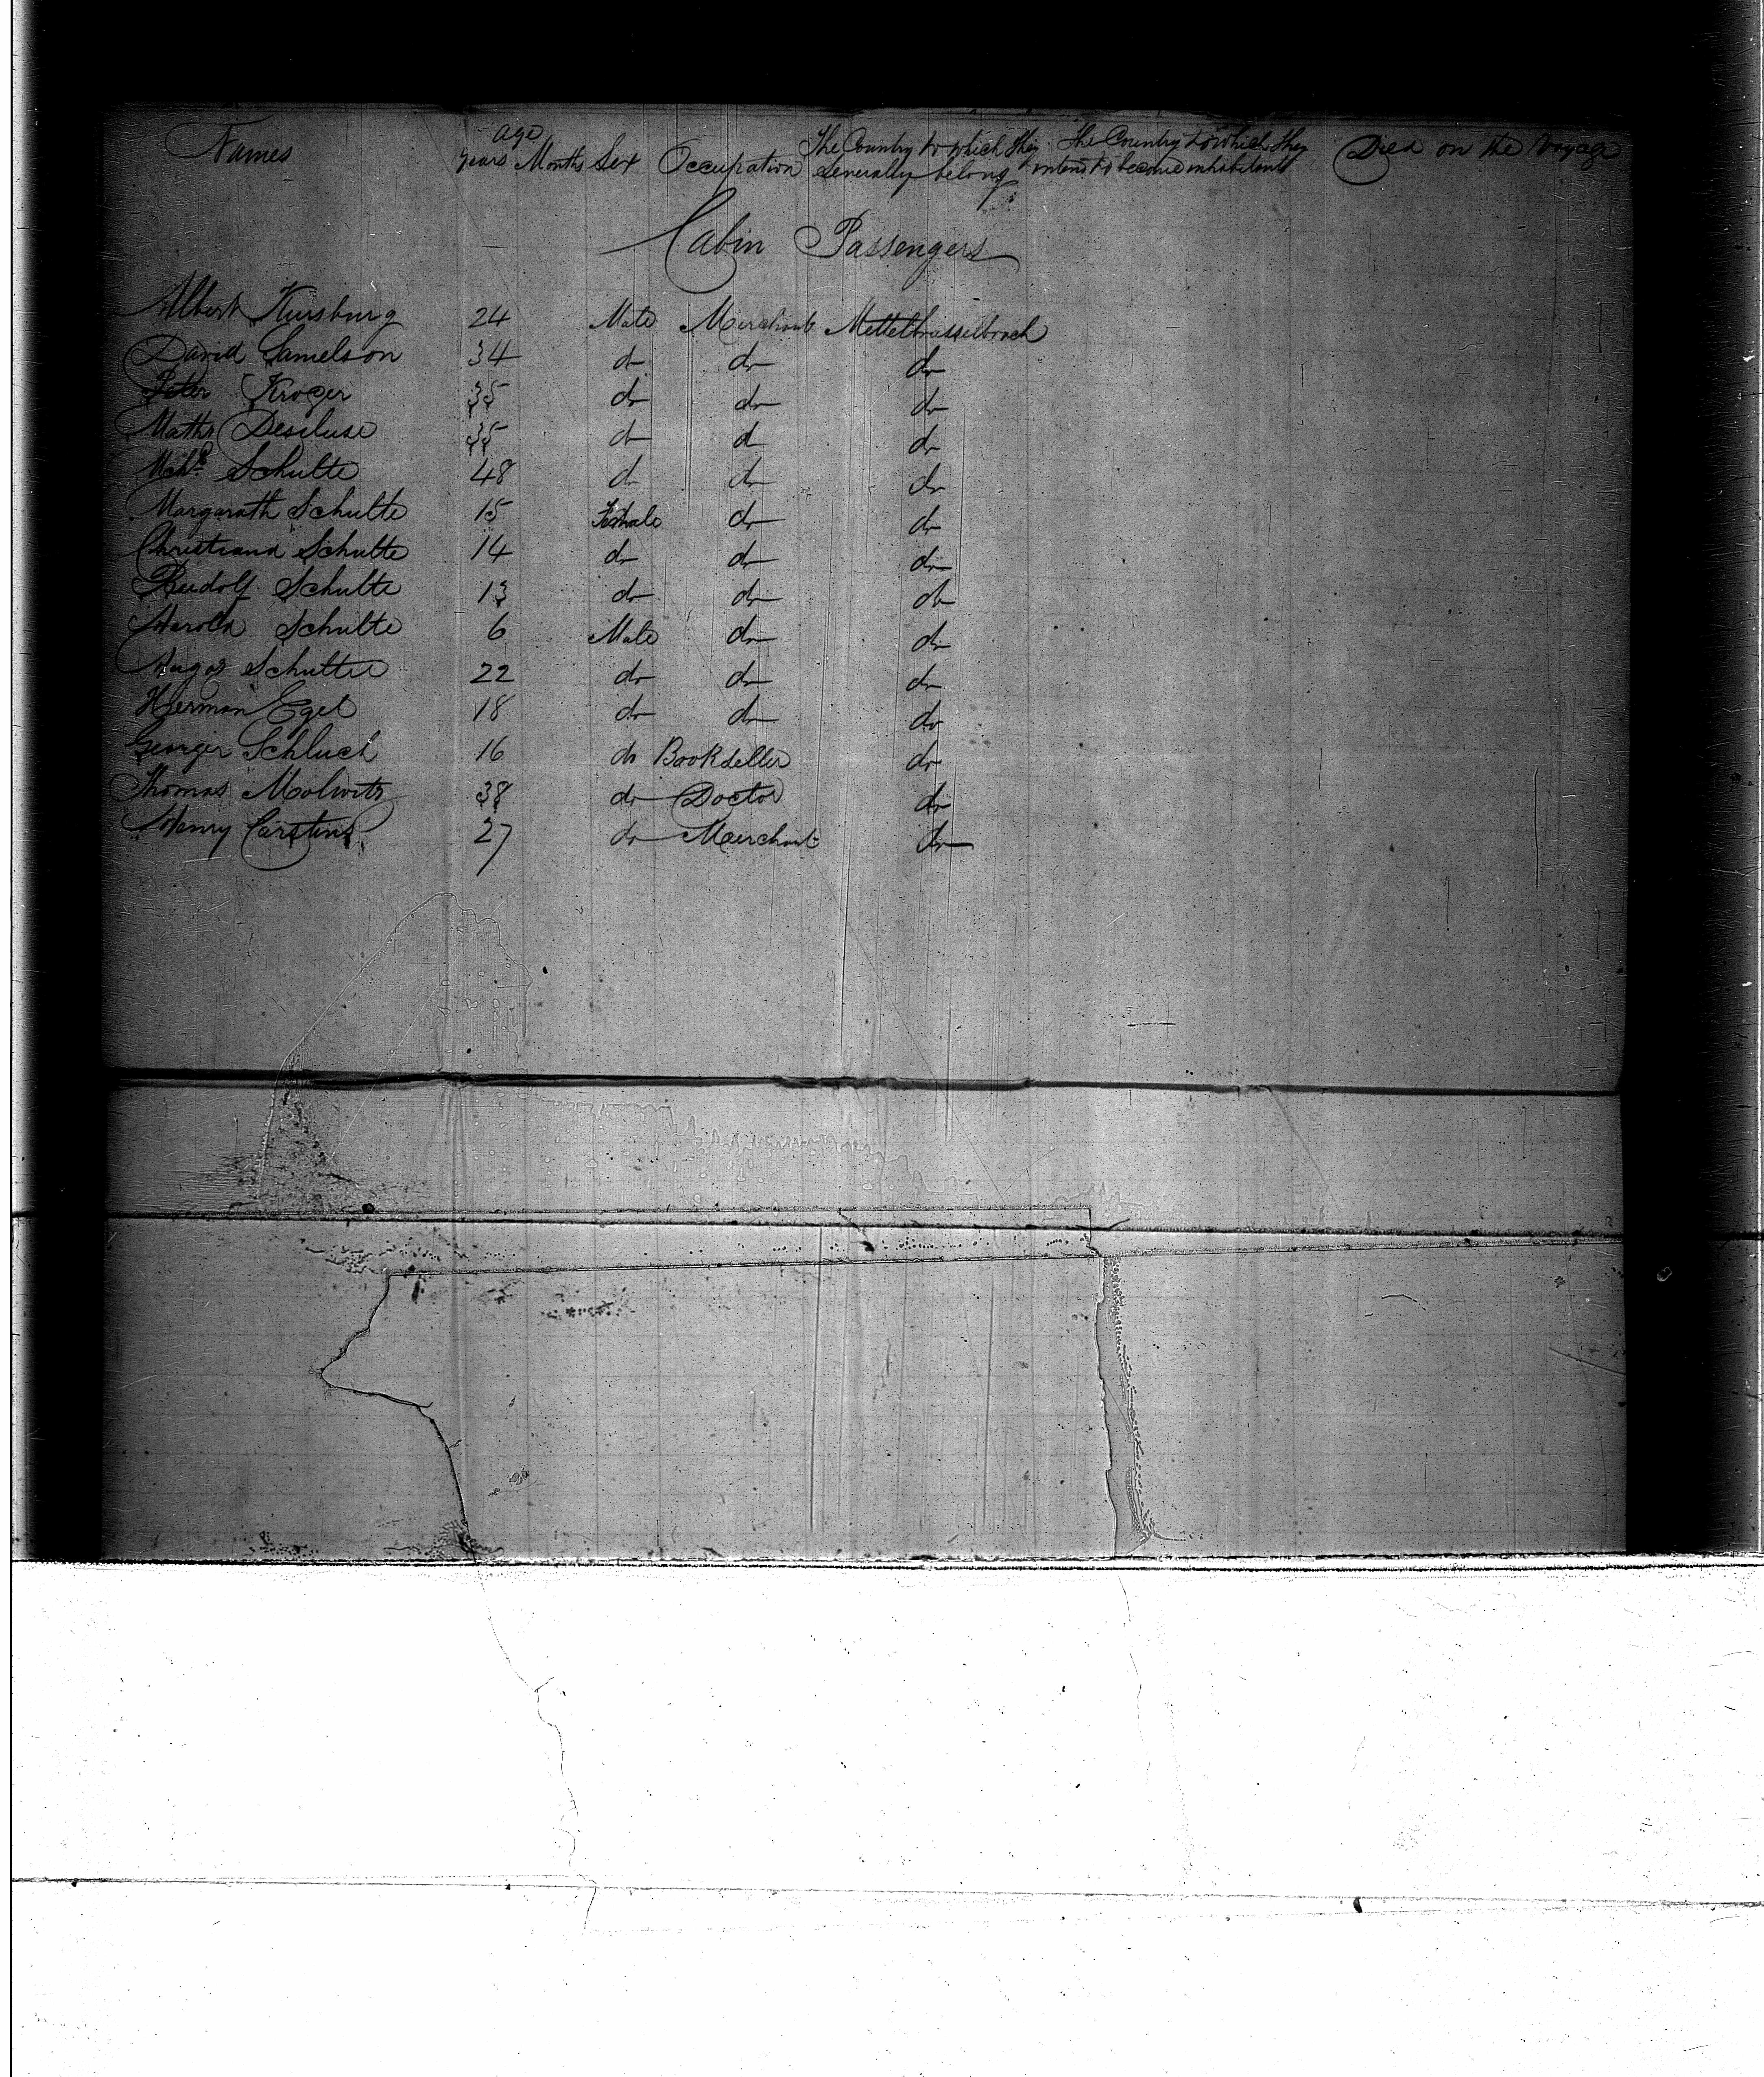 Names age years Months Sex Occupation The Country to which they Generally belong The Country to which they intend to become inhabitants Died on the Voyage
Cabin Passengers
Albert 24 Male Merchant
David Samelson 34 do do do
Peter Kroger 35 do do do
Maths 35 do d do
Schulte 48 d do do
Margarath Schulte 15 Female do do
Christiana Schulte 14 do do do
Rudolf Schulte 13 do do do
Harold Schulte 6 Male do do
Schulte 22 do do do
Herman Egel 18 do do do
George Schluch 16 do Bookseller do
Thomas Molwitz 38 do Doctor do
Henry Carstins 27 do Merchant do